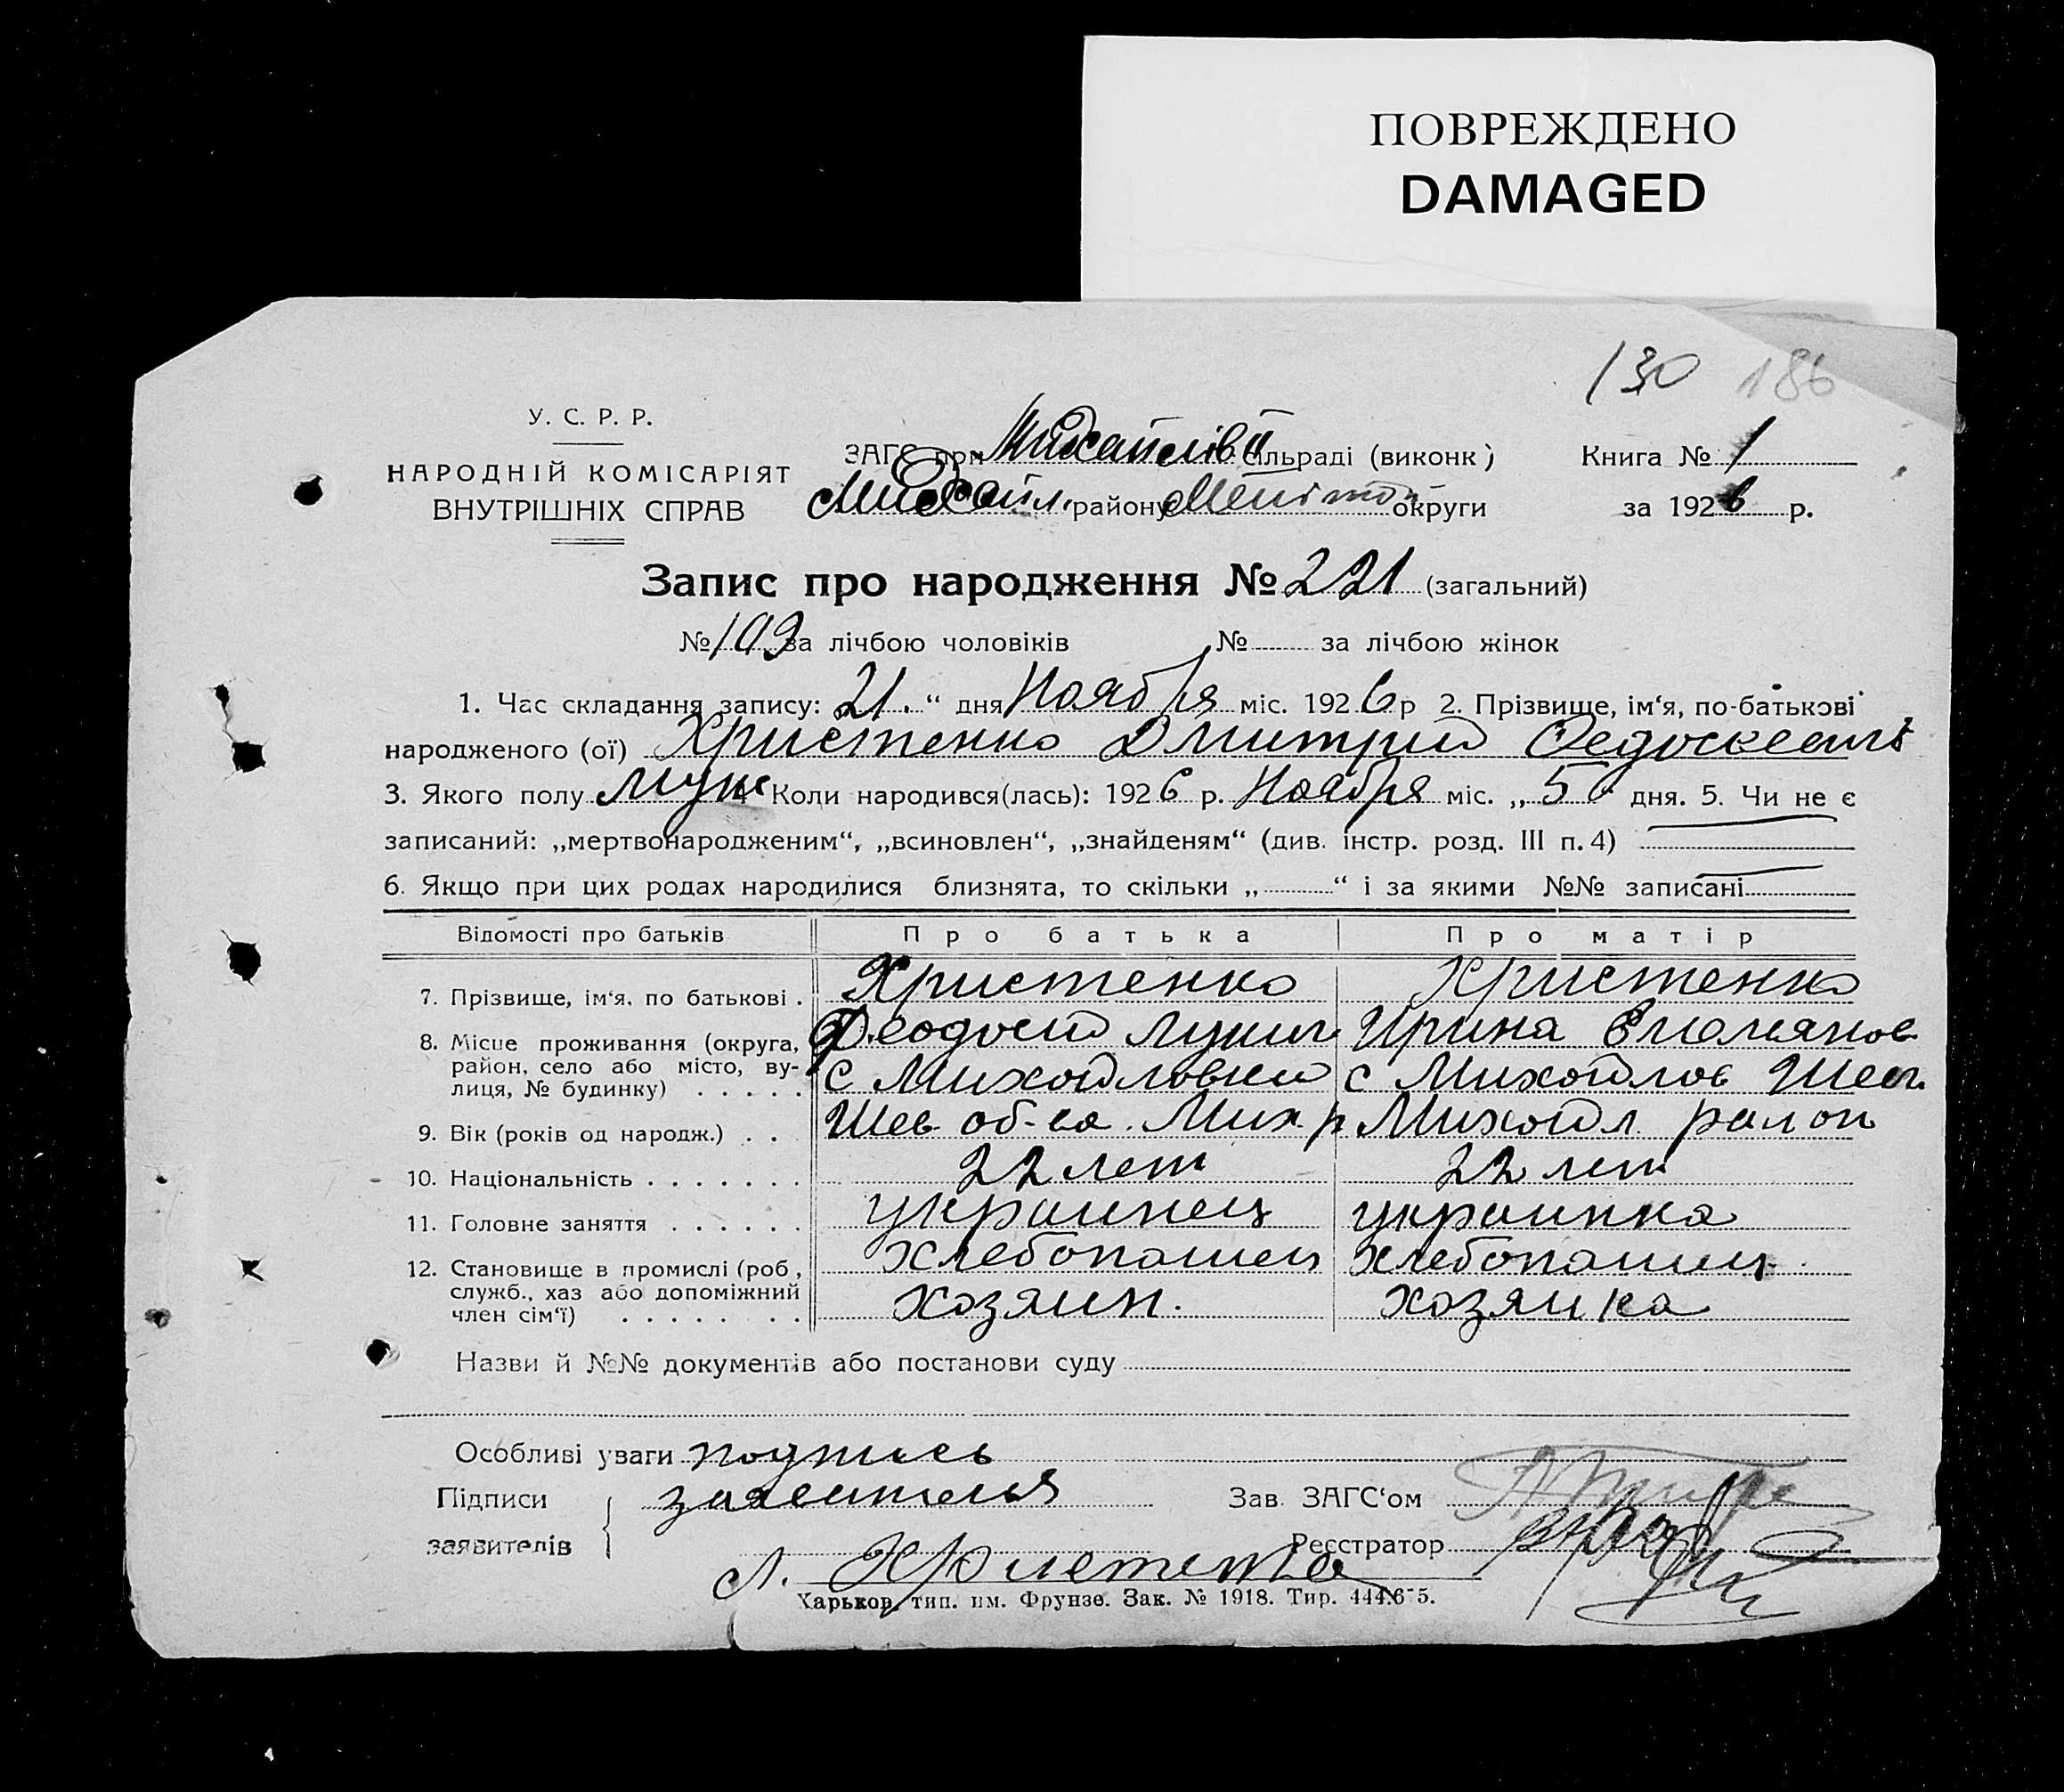 ПОВРЕЖДЕНО
DAMAGED
130 186
У. С. Р. Р.
НАРОДНІЙ КОМІСАРІЯТ
ВНУТРІШНІХ СПРАВ
ЗАГС при Михайлів сільраді (виконк)
Михайл. району Меліто округи
Книга № 1
за 1926 р.
Запис про народження № 221 (загальний)
№ 109 за лічбою чоловіків № за лічбою жінок
1. Час складання запису: 21. “ дня Ноября міс. 1926 р 2. Прізвище, ім‘я, по-батькові
народженого (ої) Христенко Дмитрий
3. Якого полу муж 4 Коли народився(лась): 1926 р. Ноября міс. „ 5 “ дня. 5. Чи не є
записаний: „мертвонародженим“, „всиновлен“, „знайденям“ (див. інстр. розд. III п. 4)
6. Якщо при цих родах народилися близнята, то скільки „ “ і за якими №№ записані
Відомості про батьків Про батька Про матір
7. Прізвище, ім‘я, по батькові . Христенко Христенко
8. Місце проживання (округа, Феодосий Лукич Ирина Емельянов
район, село або місто, ву- с Михойловки с Михойлов Шевч.
лиця, № будинку) . . . . .
9. Вік (років од народж.) . . Шев об-ва. Мих. р Михойл район
10. Національність . . . . . . . 22 лет 22 лет
11. Головне заняття . . . . . . украинец украинка
12. Становище в промислі (роб, хлебопашец хлебопашец.
служб., хаз або допоміжний хозяин. хозяика
член сім‘ї) . . . . . . .
Назви й №№ документів або постанови суду
Особливі уваги подпись
Підписи заявителя Зав. ЗАГС‘ом
заявителів Реєстратор
Л. Христенко
Харьков, тип. им. Фрунзе. Зак. № 1918. Тир. 444.675.